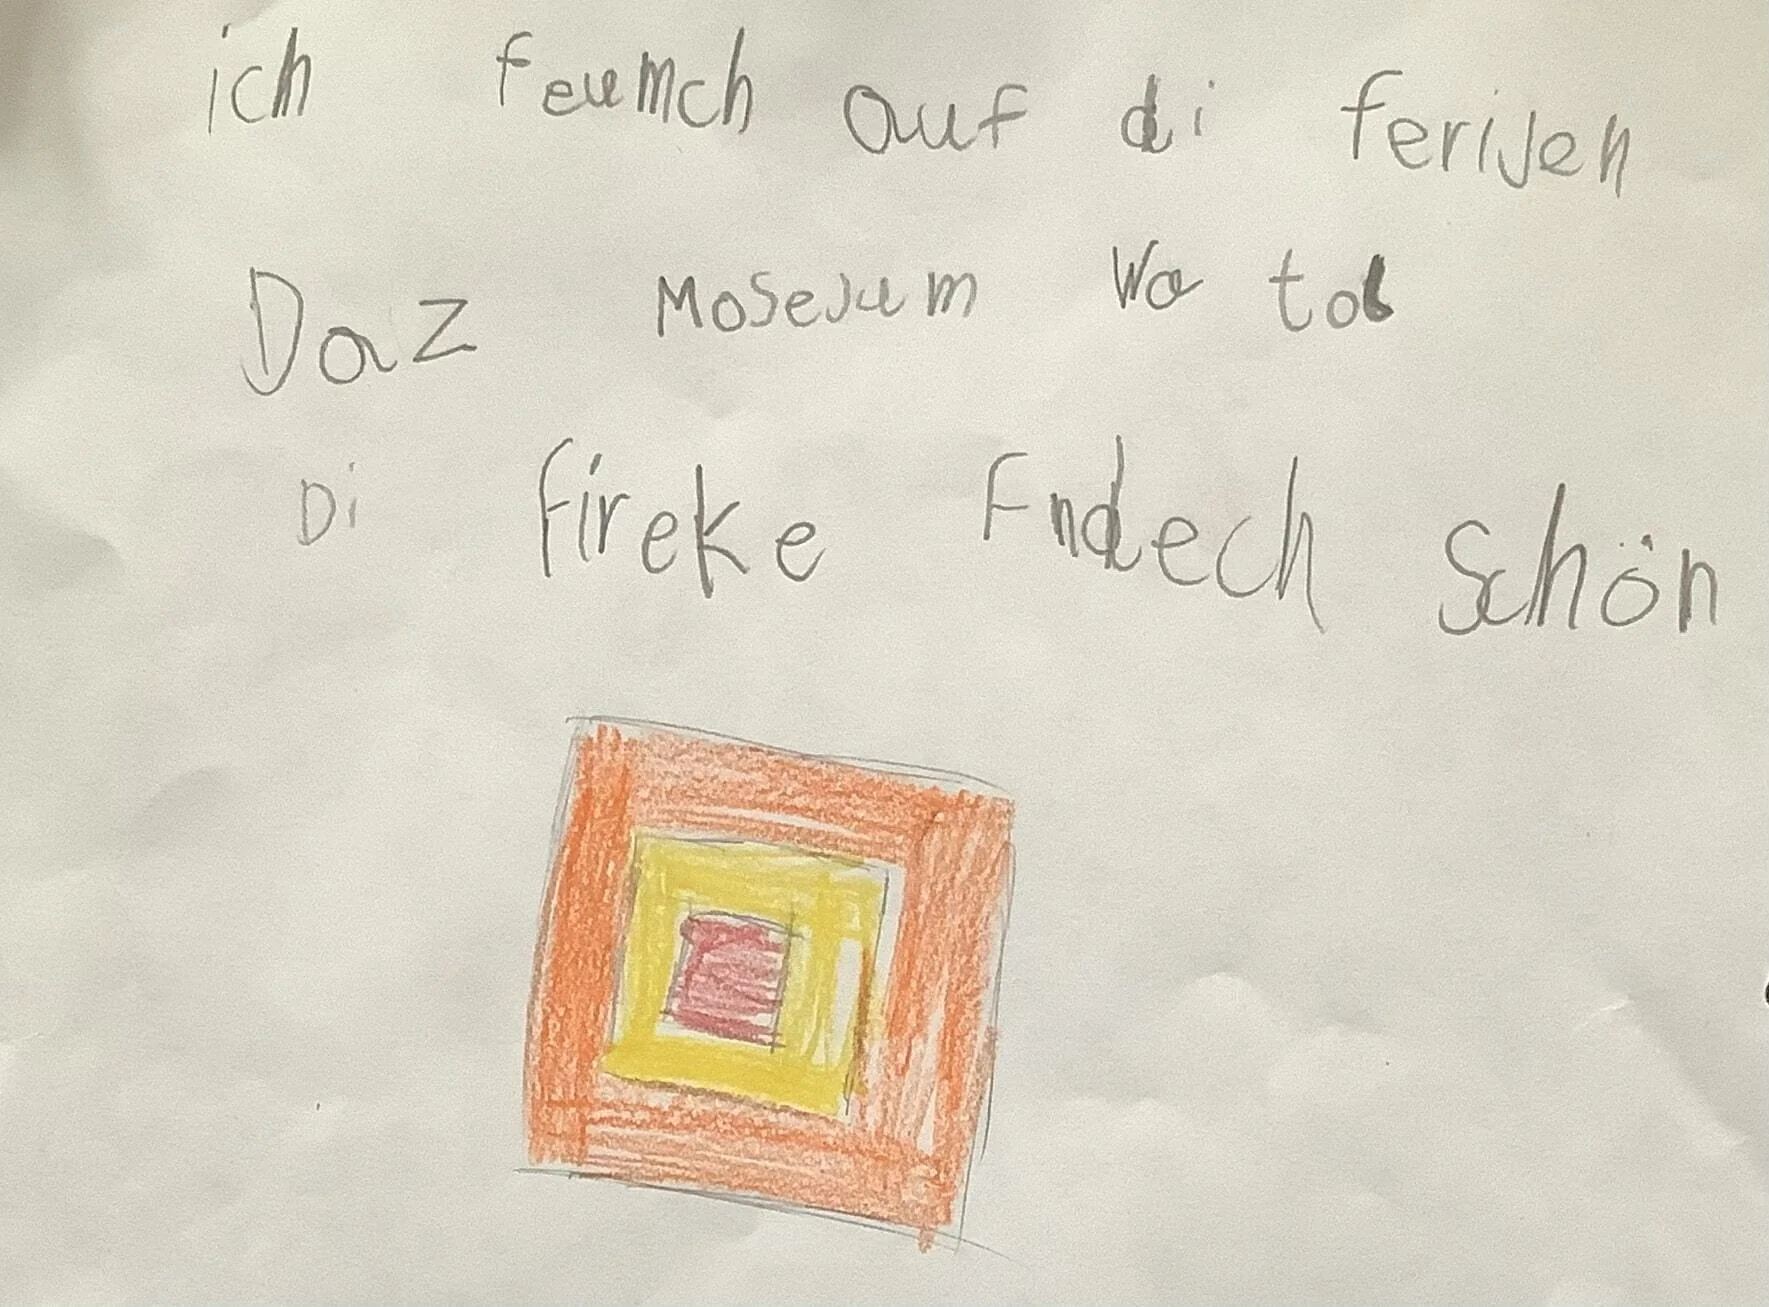 ich feumch auf di ferijen
Daz Mosejum Wa tol
Di fireke Fndech schön